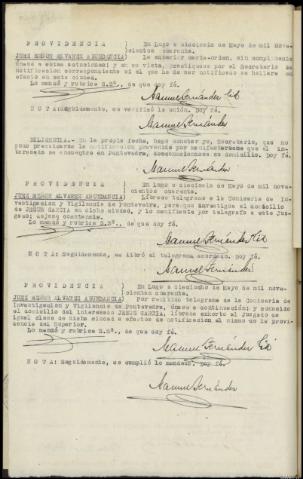 PROVIDENCIA En Lugo a dieciseis de Mayo de mil nove-
cientos cuarenta.
JUEZ SEÑOR ALVAREZ ABUNDANCIA) La anterior carta-orden, sin cumplimento
únase a estas actuaciones y en su vista, practíquese por el Secretario la
notificación correspondiente si el que ha de ser notificado se hallare en
efecto en esta ciudad.
Lo mandó y rubrica S.Sª., de que doy fé.
Manuel Fernández
NOTA: Seguidamente, se verificó la unión. Doy fé.
Manuel Fernández
DILIGENCIA.- En la propia fecha, hago constar yo, Secretario, que no
pude practicarse la notificación prevenida por manifestárseme que el in-
teresado se encuentra en Pontevedra, desconociéndose su domicilio. Doy fé.
Manuel Fernández
PROVIDENCIA En Lugo a dieciseis de Mayo de mil nove-
cientos cuarenta.
JUEZ SEÑOR ALVAREZ ABUNDANCIA) Líbrese telegrama a la Comisaria de In-
vestigación y Vigilancia de Pontevedra, para que investigue el domicilio
de JESUS GARCIA en dicha ciudad, y lo manifieste por telégrafo a este Juz-
gado;
Lo mandó y rubrica S.Sª., de que doy fé.
Manuel Fernández
NOTA: Seguidamente, se libró el telegrama acordado. Doy fé.
Manuel Fernández
PROVIDENCIA En Lugo a dieciseis de Mayo de mil nove-
cientos cuarenta.
JUEZ SEÑOR ALVAREZ ABUNDANCIA) Por recibido telegrama de la Comisaria de
Investigación y Vigilancia de Pontevedra, únase a continuación; y conocido
el domicilio del interesado JESUS GARCIA, líbrese exhorto al Juzgado de
igual clase de dicha ciudad a efectos de notificación al mismo de la provi-
dencia del Superior.
Lo mandó y rubrica S.Sª., de que doy fé.
Manuel Fernández
NOTA: Seguidamente, se cumplió lo mandado. Doy fé.
Manuel Fernández